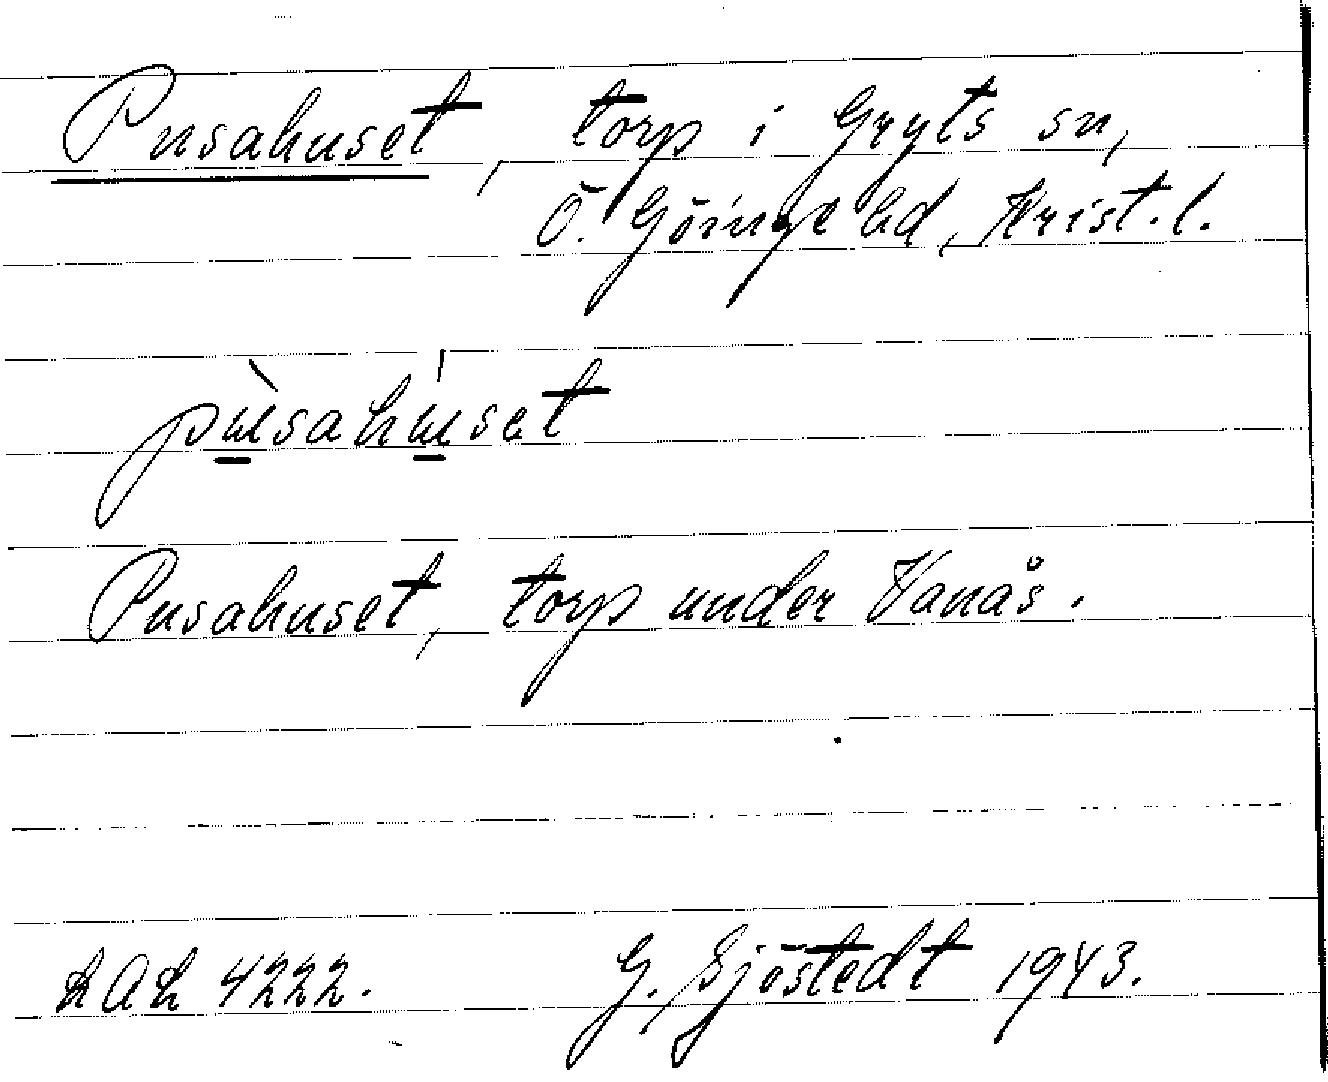 Pusahuset, torp i Gryts sn,
Ö. Göinge hd, Krist. l.
pù̱sahú̱set
Pusahuset, torp under Vanås.
LAL 4222. G. Sjöstedt 1943.